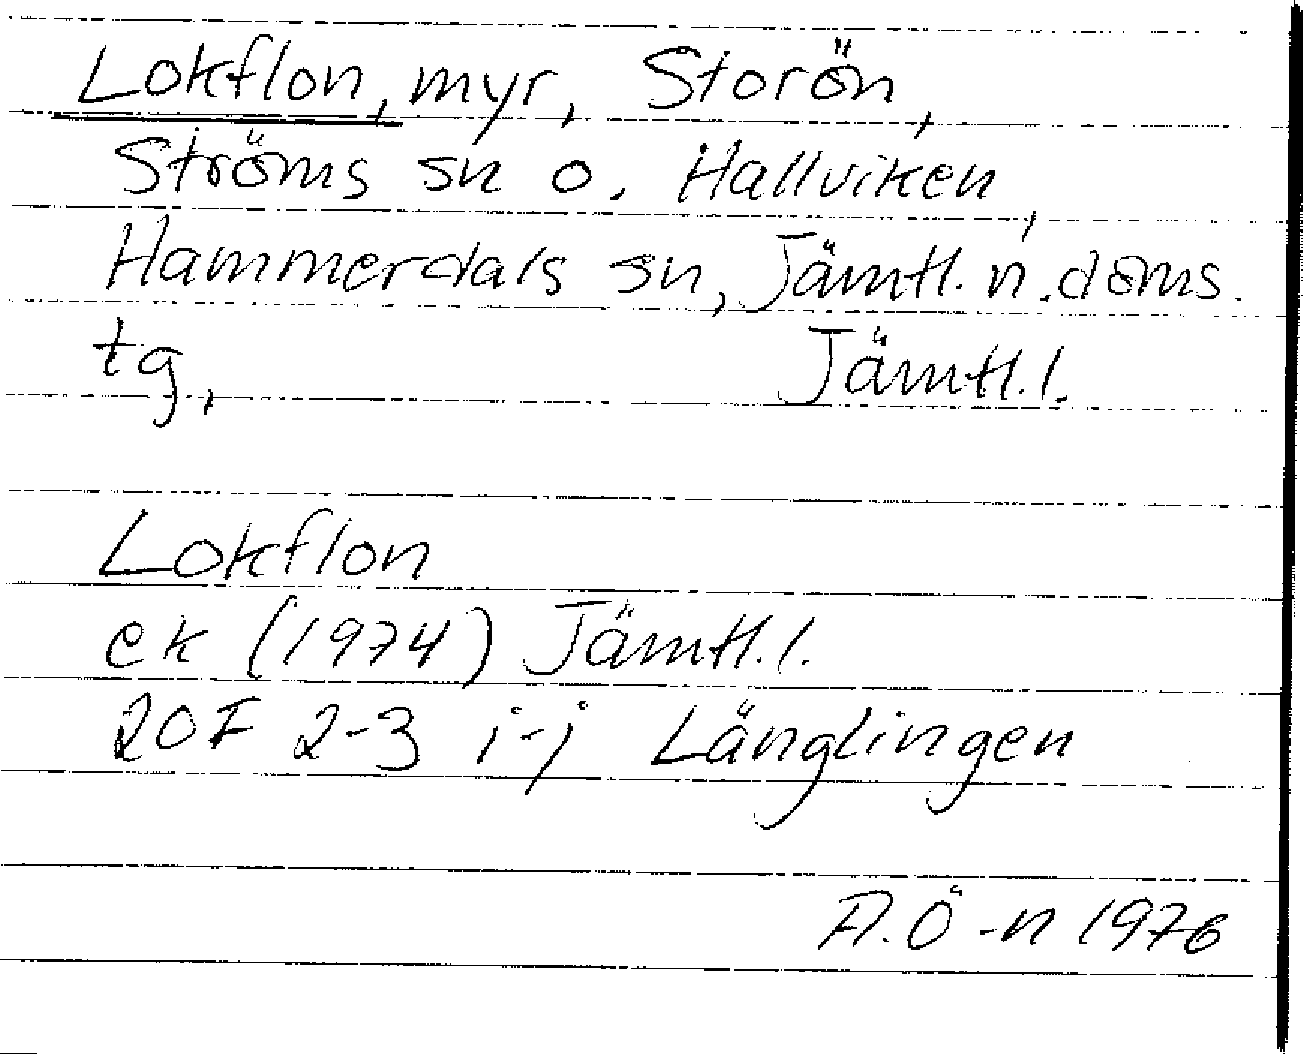 Lokflon, myr, Storön,
Ströms sn o. Hallviken,
Hammerdals sn, Jämtl. n. doms.
tg, Jämtl. l.
Lokflon
ek (1974) Jämtl. l.
20F 2-3 i-j Länglingen
A. Ö-n 1976